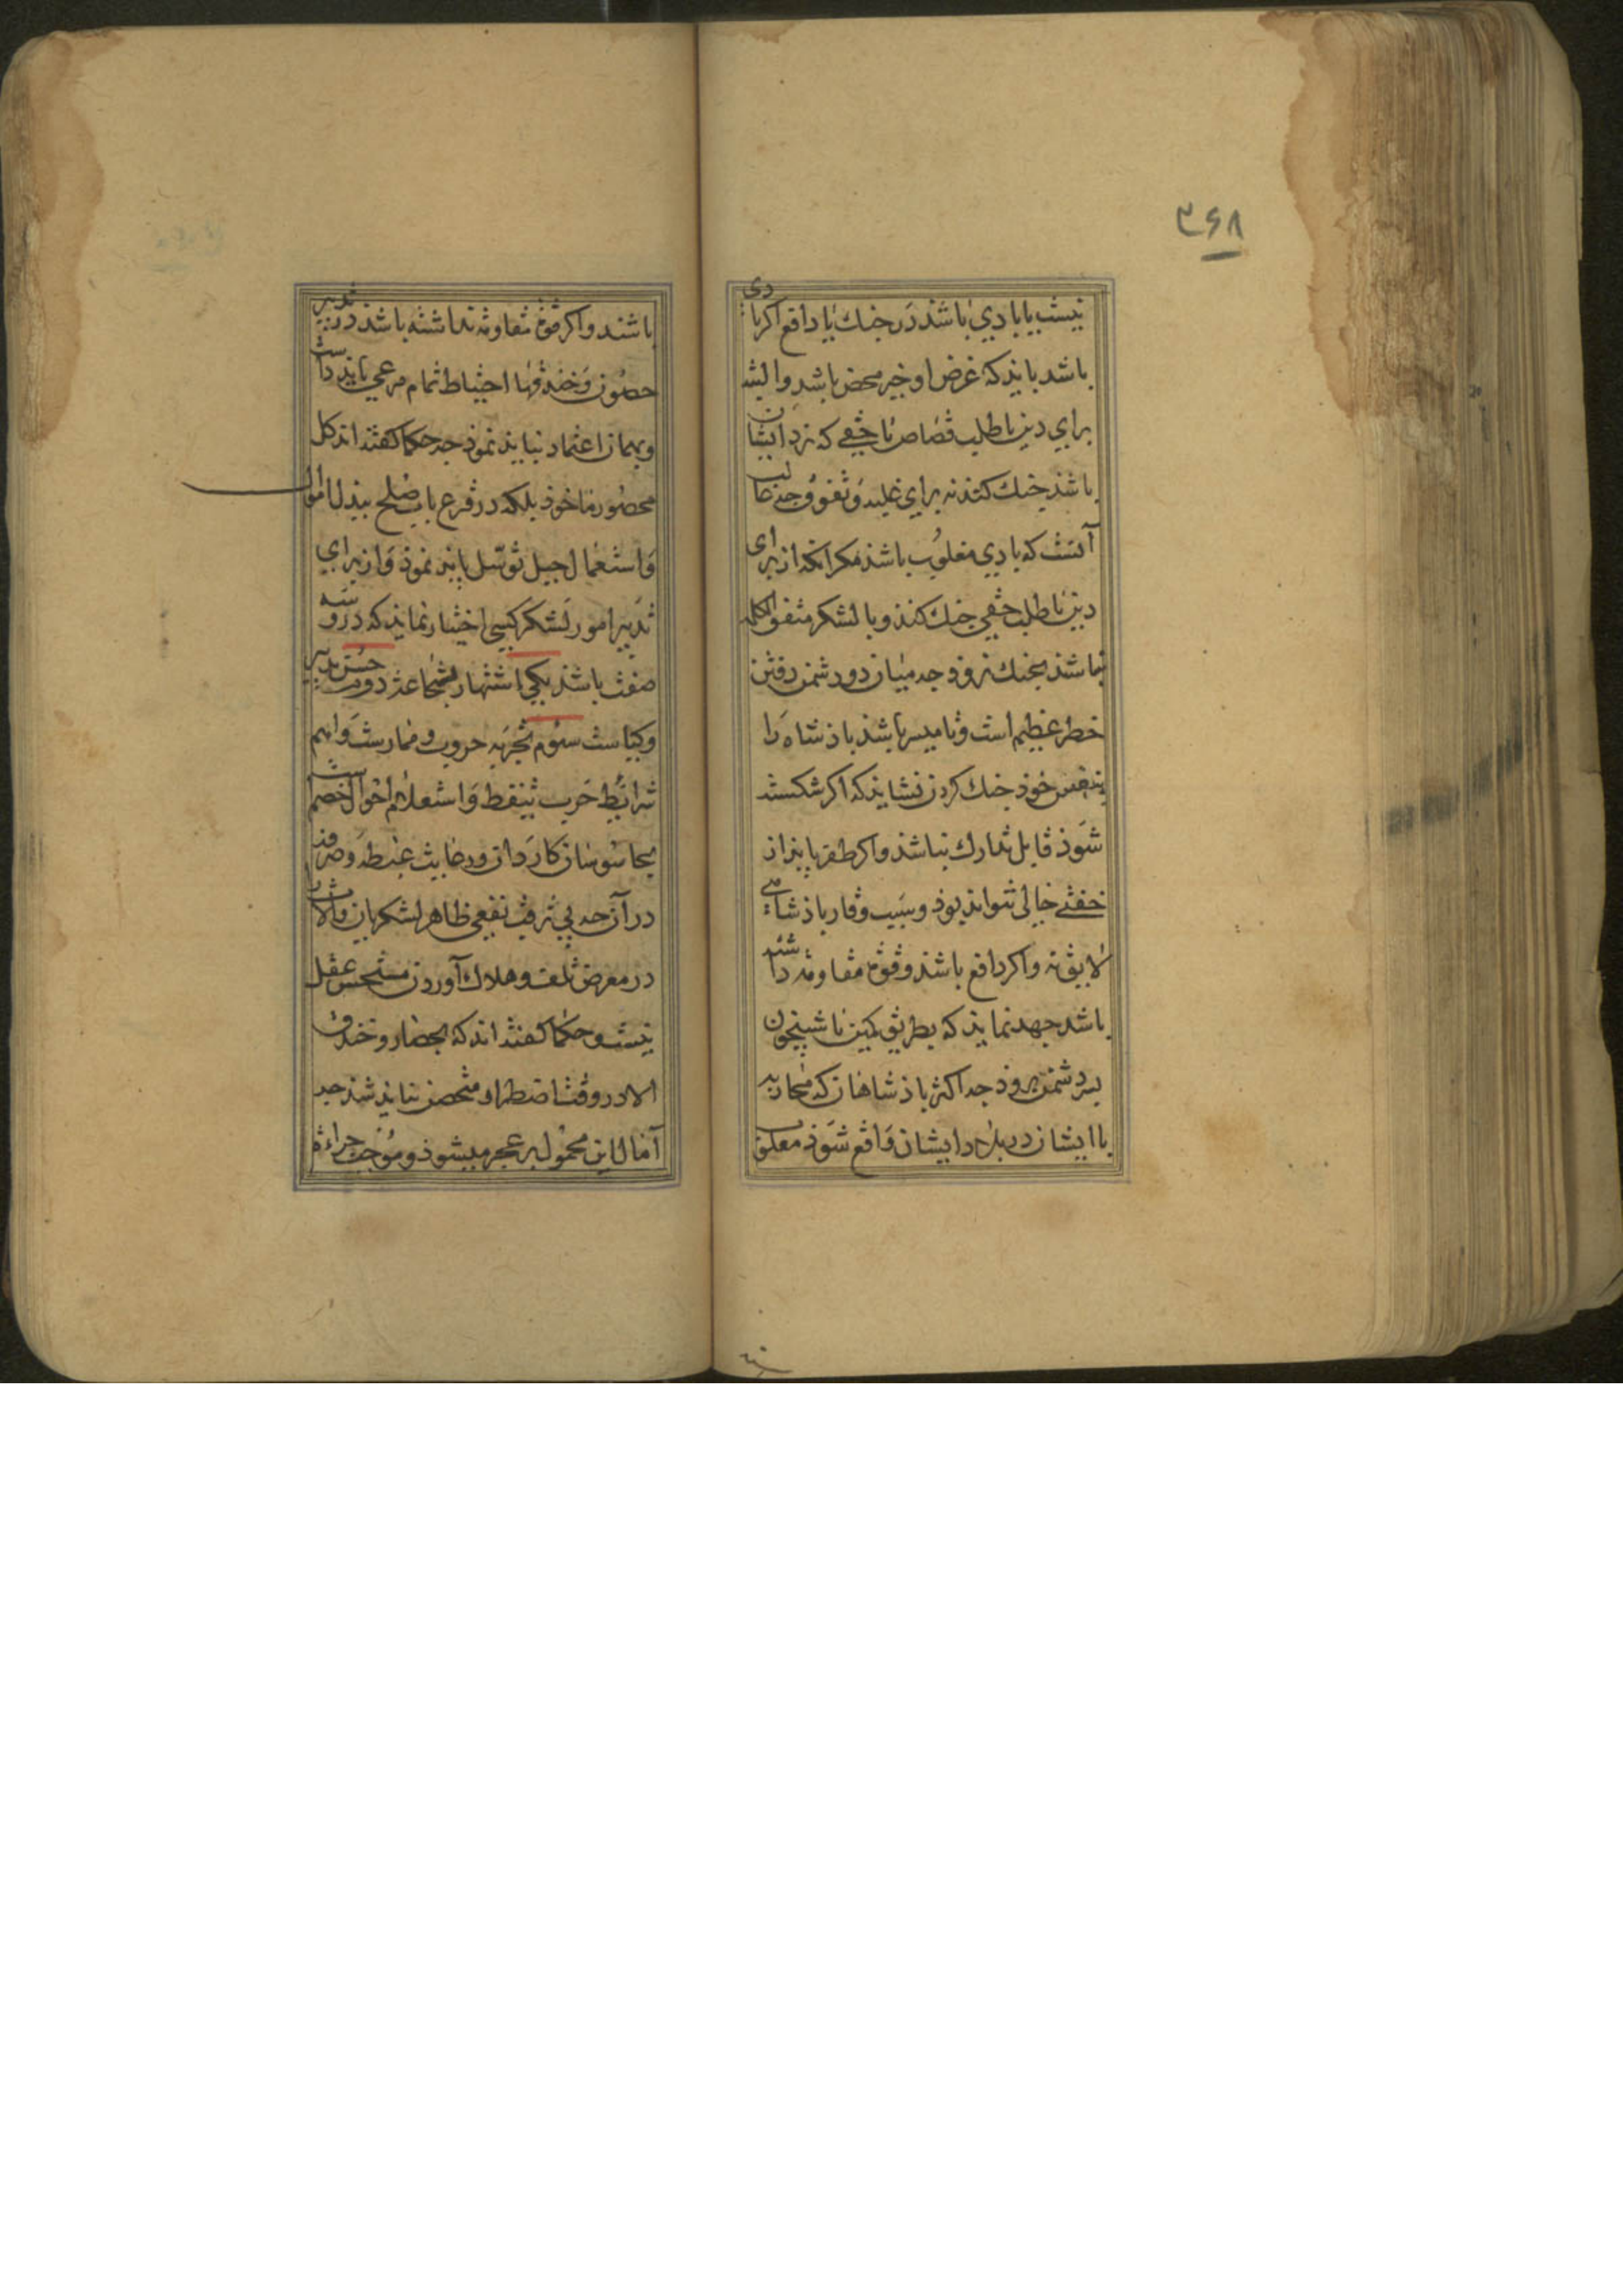 ۳۶۸
نیست یا بادی باشد در جنك یا دافع اکر بادی
باشد بایذ که غرض او خیر محض باشد والیشان
برای دین یا طلب قصاص یا حقی که نزد ایشان
باشذ جنك کنذ نه برای غلبه و تفوق وجه غالب
آنست که بادی مغلوب باشذ مکر انکه از برای
دین یا طلب حقی جنك کنذ و با لشکر متفق الکلمه
نباشذ بجنك نروذ جه میان دو دشمن رفتن
خطر عظیم است وتا میسر باشذ باذشاه را
بنفس خوذ جنك کردن نشایذ که اکر شکسته
شوذ قابل تدارك نباشذ واکر ظفر یابذ از
خفتی خالی نتوانذ بوذ وبسبب وقار باذشاهی
لایق نه واکر دافع باشذ وقوة مقاومة داشته
باشد جهد نمایذ که بطریق کمین یا شبیخون
بسر دشمن روذ جه اکثر باذشاهان که محاربه
با ایشان در بلاد ایشان واقع شوذ مغلوب
باشند واکر قوة مقاومة نداشته باشد در تدبیر
حصون وخندقها احتیاط تمام مرعی بایذ داشت
وبهمان اعتماد نبایذ نموذ جه حکما کفته اند کل
محصور ماخوذ بلکه در قرع باب صلح ببذل اموال
واستعمال حیل توسل بایذ نموذ واز برای
تدبیر امور لشکر کسی اختیار نمایذ که در و سه
صفت باشذ یکی اشتهار بشجاعة دوم حسن تدبیر
وکیاست سوم تجربه حروب وممارست واهم
شرایط حرب تیقظ واستعلام احوال خصم است
بجاسوسان کاردان ورعایت غبطه وصرفه
در آن جه بی ترقب نفعی ظاهر لشکریان والات
در معرض تلف وهلاك آوردن مستحسن عقل
نیست وحکما کفته اند که بحصار وخندق
الا در وقت اضطرار متحصن نبایذ شذ جه
آمال این محمول بر عجز میشوذ وموجب جراءة